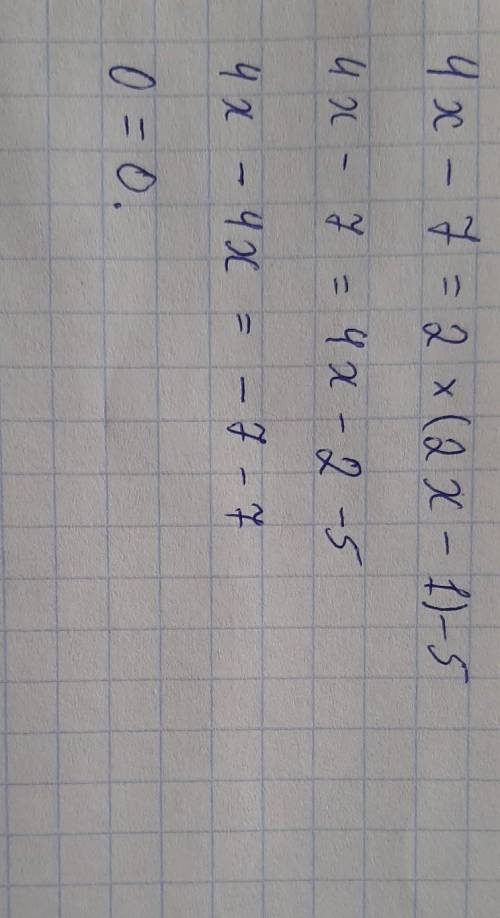 4x - 7 = 2 × (2x - 1) - 5
4x - 7 = 4x - 2 - 5
4x - 4x = - 7 - 7
0 = 0.